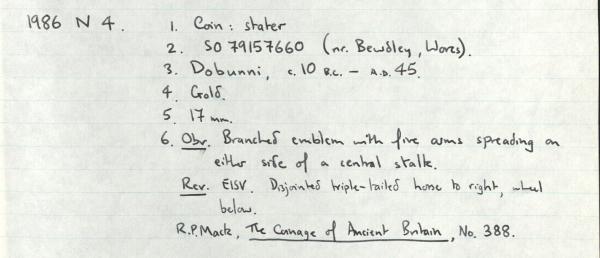 1986 N 4. 1. Coin: stater
2. SO 79157660 (nr. Bewdley, Worcs).
3. Dobunni, c. 10 B.C. – A.D. 45.
4. Gold.
5. 17 mm.
6. Obv. Branched emblem with five arms spreading on
either side of a central stalk.
Rev. EISV. Disjointed triple-tailed horse to right, wheel
below.
R.P. Mack, The Coinage of Ancient Britain, No. 388.